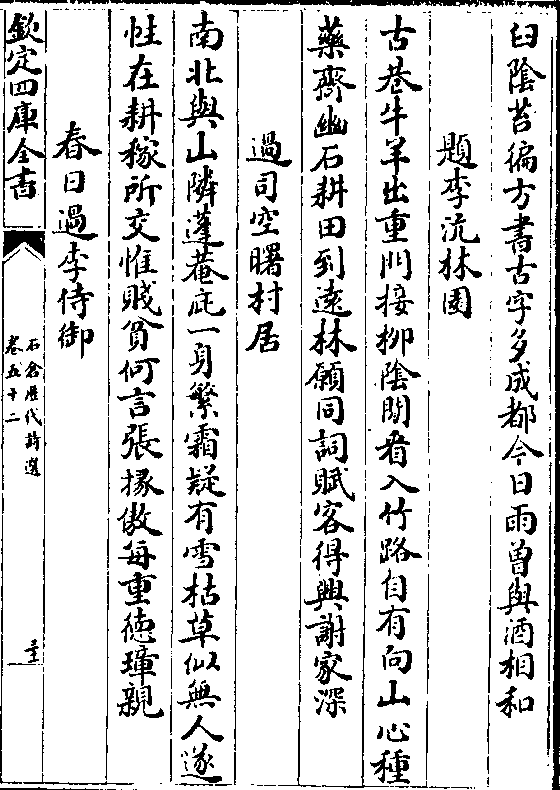 臼陰苔徧方書古字多成都今日雨曾與酒相和
題李沆林園
古巷牛羊出重門接栁陰閒看入竹路自有向山心種
藥齋幽石耕田到遠林願同詞賦客得興謝家深
過司空曙村居
南北與山隣蓬菴庇一身繁霜疑有雪枯草似無人遂
性在耕稼所交惟賤貧何言張掾傲每重德璋親
春日過李侍御
欽定四庫全書
石倉歴代詩選
卷五十二